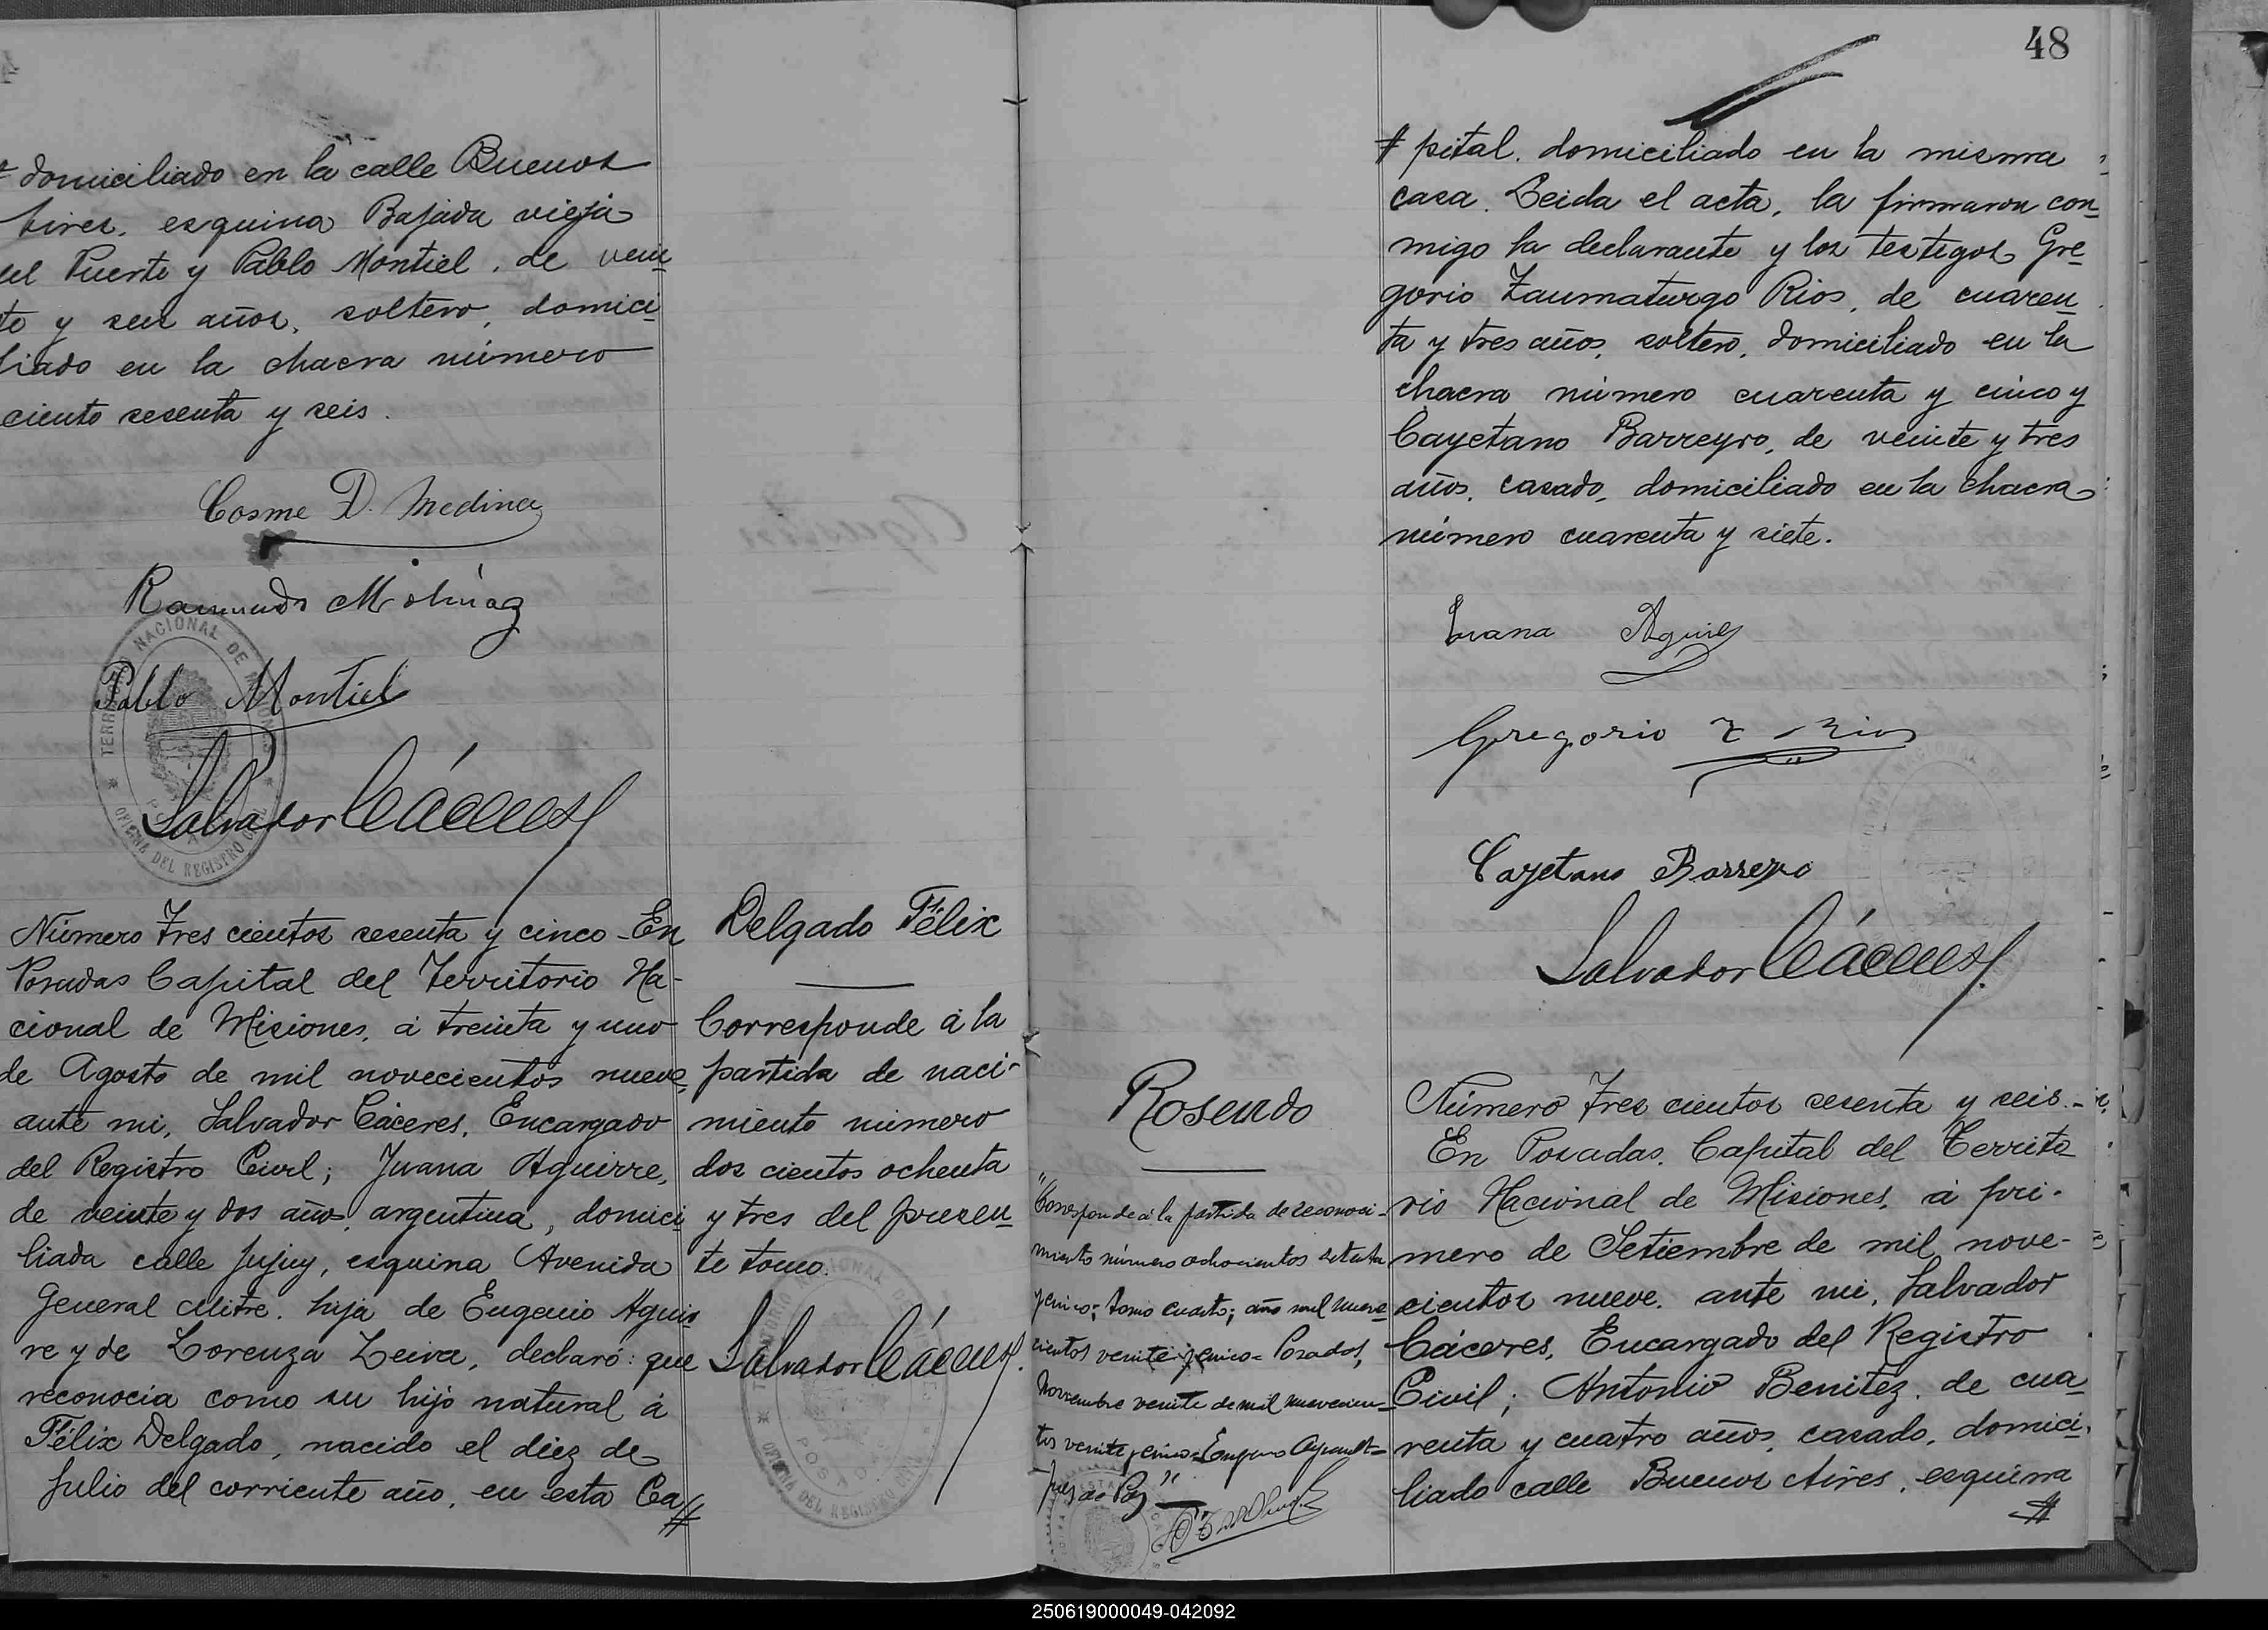 domiciliado en la calle Buenos
Aires, esquina Bajada vieja
del Puerto y Pablo Montiel, de vein
te y seis años, soltero, domici
liado en la chacra número
ciento sesenta y seis.
Cosme D. Medina
Raimundo Molinas
Pablo Montiel
TERRITORIO NACIONAL DE MISIONES
OFICINA DEL REGISTRO CIVIL
POSADAS
Salvador Cáceres
Número Tres cientos sesenta y cinco - En
Posadas Capital del Territorio Na-
cional de Misiones, á treinta y uno
de Agosto de mil novecientos nueve,
ante mi, Salvador Cáceres, Encargado
del Registro Civil; Juana Aguirre,
de veinte y dos años, argentina, domici
liada calle Jujuy, esquina Avenida
General Mitre, hija de Eugenio Aguir
re y de Lorenza Leiva, declaró: que
reconocia como su hijo natural á
Félix Delgado, nacido el diez de
Julio del corriente año, en esta Ca//
Delgado Félix
Corresponde á la
partida de naci-
miento número
dos cientos ochenta
y tres del presen
te tomo.
Salvador Cáceres
TERRITORIO NACIONAL DE MISIONES
OFICINA DEL REGISTRO CIVIL
POSADAS
48
// pital, domiciliado en la misma
casa. Leida el acta, la firmaron con
migo la declarante y los testigos Gre
gorio Taumaturgo Rios, de cuaren
ta y tres años, soltero, domiciliado en la
chacra número cuarenta y cinco y
Cayetano Barreyro, de veinte y tres
años, casado, domiciliado en la chacra
número cuarenta y siete.
Juana Aguirre
Gregorio T Rios
Cayetano Barreyro
Salvador Cáceres
Rosendo
"Corresponde á la partida de reconoci-
miento número ochocientos setenta
y cinco; tomo cuarto; año mil nueve
cientos veinte y cinco - Posadas,
Noviembre veinte de mil novecien-
tos veinte y cinco -
Juez de Paz"
Número Tres cientos sesenta y seis. -
En Posadas, Capital del Territo
rio Nacional de Misiones, á pri-
mero de Setiembre de mil nove-
cientos nueve, ante mi, Salvador
Cáceres, Encargado del Registro
Civil; Antonio Benitez, de cua
renta y cuatro años, casado, domici-
liado calle Buenos Aires, esquina
//
250619000049-042092